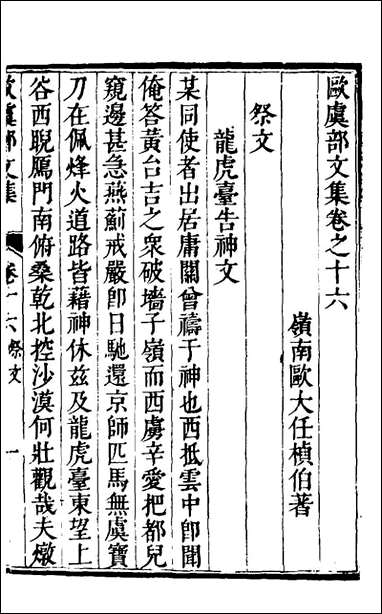 歐虞部文集卷之十六
嶺南歐大任楨伯著
祭文
龍虎臺告神文
某同使者出居庸關曾禱于神也西抵雲中卽聞
俺答黃台吉之衆破墻子嶺而西虜辛愛把都兒
窺邊甚急燕薊戒嚴卽日馳還京師匹馬無虞寶
刀在佩烽火道路皆藉神休兹及龍虎臺東望上
谷西睨鴈門南俯桑乾北控沙漠何壯觀哉夫燉
歐虞部文集
卷十六 祭文
一